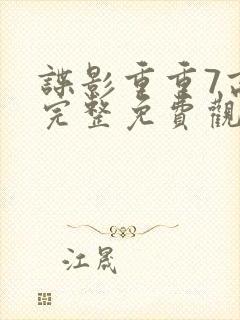 諜影重重7高
完整免費觀
江晟